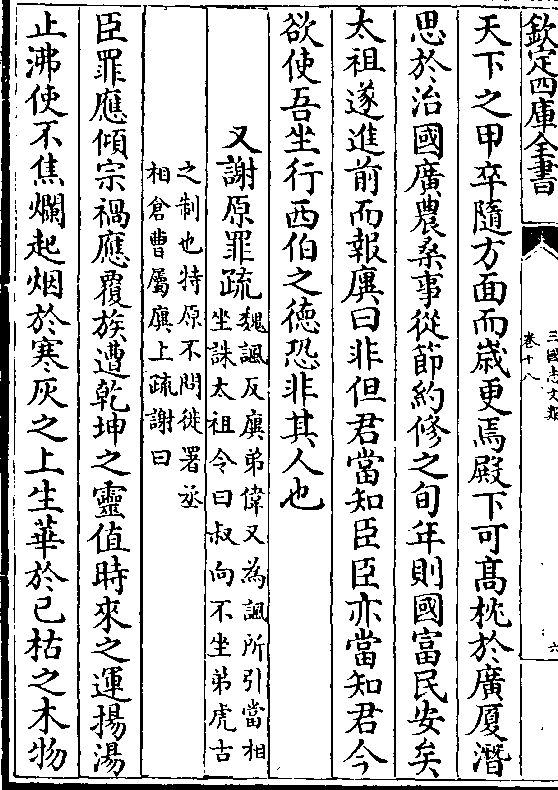 欽定四庫全書
三國志文類
卷十八
六
天下之甲卒隨方面而歳更焉殿下可髙枕於廣厦潛
思於治國廣農桑事從節約修之旬年則國富民安矣
太祖遂進前而報廙曰非但君當知臣臣亦當知君今
欲使吾坐行西伯之徳恐非其人也
又謝原罪疏
魏諷反廙弟偉又為諷所引當相
坐誅太祖令曰叔向不坐弟虎古
之制也特原不問徙署丞
相倉曹屬廙上疏謝曰
臣罪應傾宗禍應覆族遭乾坤之靈值時來之運揚湯
止沸使不焦爛起烟於寒灰之上生華於已枯之木物